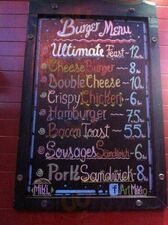 Burger Menu
Ultimate Feast - 12
Cheese Burger - 8
Double Cheese - 10
Crispy Chicken - 6
Hamburger - 7.5
Bacon Toast - 5.5
Sousages Sandwich - 6
Pork Sandwich - 8